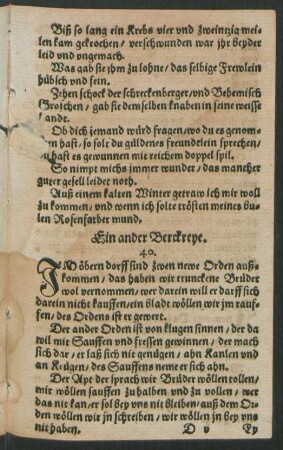 Biß so lang ein Krebs vier vnd zweintzig mei-
len kam gekrochen/ verschwunden war jhr beyder
leid vnd vngemach.
Was gab sie jhm zu lohne/ das selbige Frewlein
hübsch vnd fein.
Zehen schock der schreckenberger/ vnd Behemisch
Groschen/ gab sie dem selben knaben in seine weisse
Handt.
Ob dich jemand würd fragen/ wo du es genom-
men hast/ so solt du güldenes freundtlein sprechen/
du hast es gewunnen mit reichem doppel spil.
So nimpt michs jmmer wunder/ das mancher
guter gesell leidet noth.
Auß einem kalten Winter getraw ich mir woll
zu kommen/ vnd wenn ich solte trösten meines bu-
len Rosenfarber mund.
Ein ander Berckreye.
40.
IN öbern dorff sind zwen newe Orden auß-
kommen/ das haben wir trunckene Brüder
wol vernommen/ wer darein will er darff sich
darein nicht kauffen/ ein bladt wöllen wir jm rauf-
fen/ des Ordens ist er gewert.
Der ander Orden ist von klugen sinnen/ der da
wil mit Sauffen vnd fressen gewinnen/ der mach
sich dar/ er laß sich nit genügen/ ahn Kanlen vnd
an Krügen/ des Sauffens neme er sich ahn.
Der Apt der sprach wir Brüder wöllen rollen/
wir wöllen sauffen zu halben vnd zu vollen/ wer
das nit kan/ er sol bey vns nit bleiben/ auß dem Or-
den wöllen wir jn schreiben/ wir wöllen jn bey vns
nit haben. D v Py